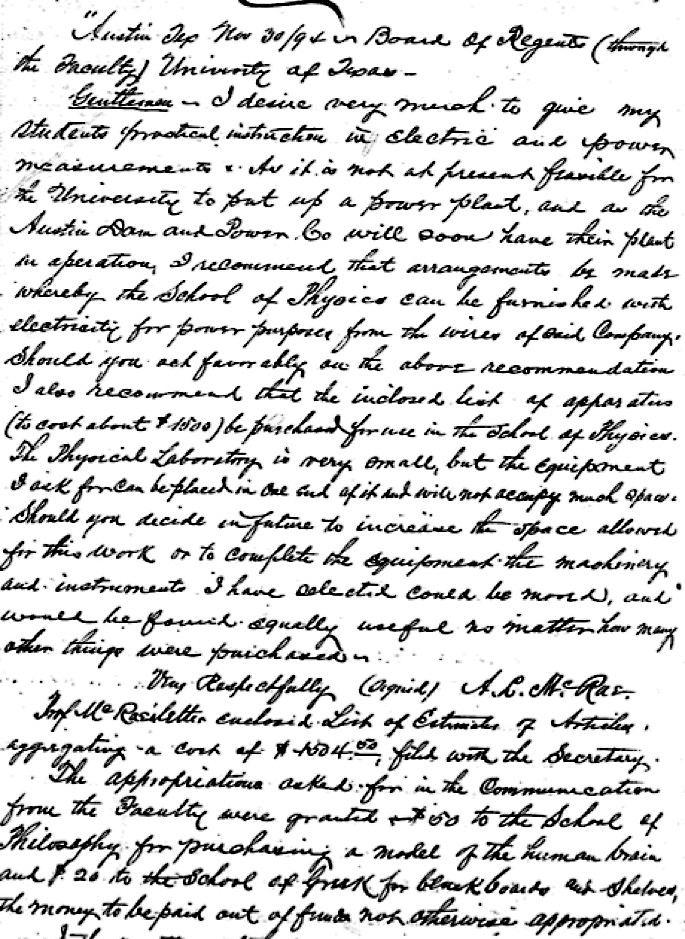 "Austin Tex Nov 30/94 – Board of Regents (through
the Faculty) University of Texas –
Gentlemen – I desire very much to give my
students practical instruction in electric and power
measurements. As it is not at present feasible for
the University to put up a power plant, and as the
Austin Dam and Power Co will soon have their plant
in operation, I recommend that arrangements be made
whereby the School of Physics can be furnished with
electricity for power purposes from the wires of said Company.
Should you act favorably on the above recommendation
I also recommend that the inclosed list of apparatus
(to cost about $1500) be purchased for use in the School of Physics.
The Physical Laboratory is very small, but the equipment
I ask for can be placed in one end of it and will not occupy much space.
Should you decide in future to increase the space allowed
for this work or to complete the equipment the machinery
and instruments I have selected could be moved, and
would be found equally useful no matter how many
other things were purchased –
Very Respectfully (signed) A. L. McRae.
Prof McRae's letter enclosed List of Estimates of Articles,
aggregating a cost of $1504.50, filed with the Secretary.
The appropriations asked for in the Communication
from the Faculty were granted & $50 to the School of
Philosophy for purchasing a model of the human brain
and $20 to the School of Greek for blackboards and shelves,
the money to be paid out of funds not otherwise appropriated.